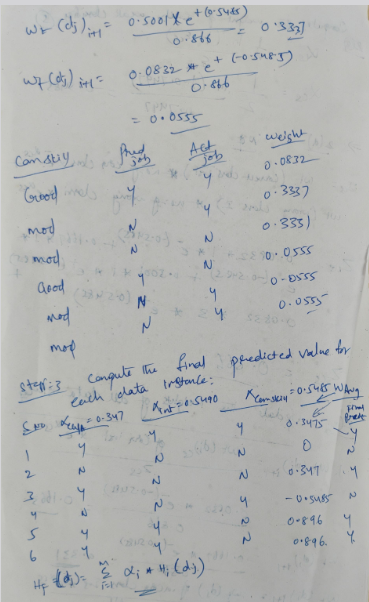 wr (dj) i+1 = 0.5001 * e+(0.5485) / 0.866 = 0.3337
wf (dj) i+1 = 0.0832 * e+(-0.5485) / 0.866
= 0.0555
Comskill Pred job Act job weight
Good Y Y 0.0832
mod Y Y 0.3337
mod N N 0.3331
Good N N 0.0555
mod Y N 0.0555
mod N Y 0.0555
N Y
Step:3 Compute the final predicted value for
each data instance:
S.no αcgpa = 0.347 αint = 0.5490 αcomskill = 0.5485 WAvg Final Pred
1 Y Y Y 0.3475 Y
2 N N N 0 N
3 Y N N 0.347 Y
4 N N Y -0.5485 N
5 Y Y N 0.896 Y
6 Y Y N 0.896 Y
HF (dj) = Σ i=1 m αi * Hi (dj)